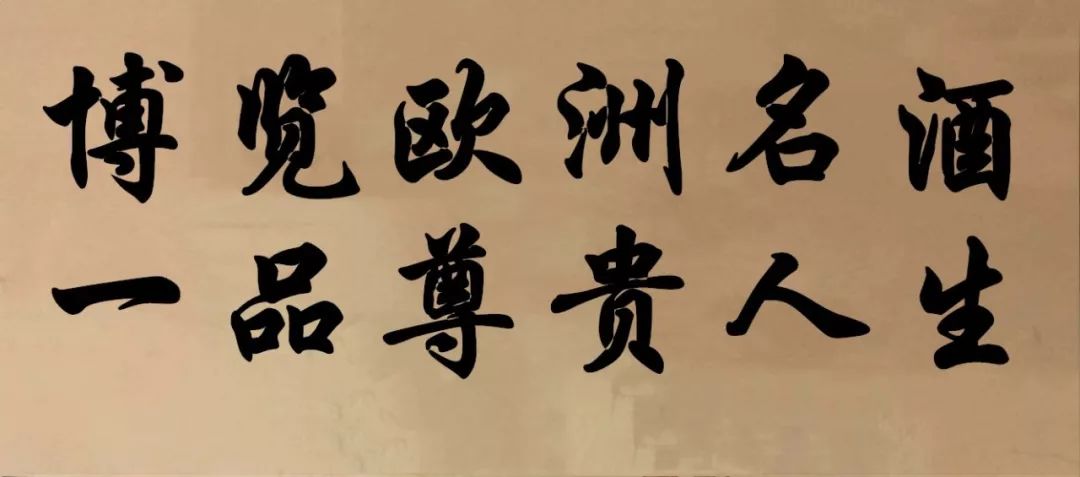 博览欧洲名酒
一品尊贵人生